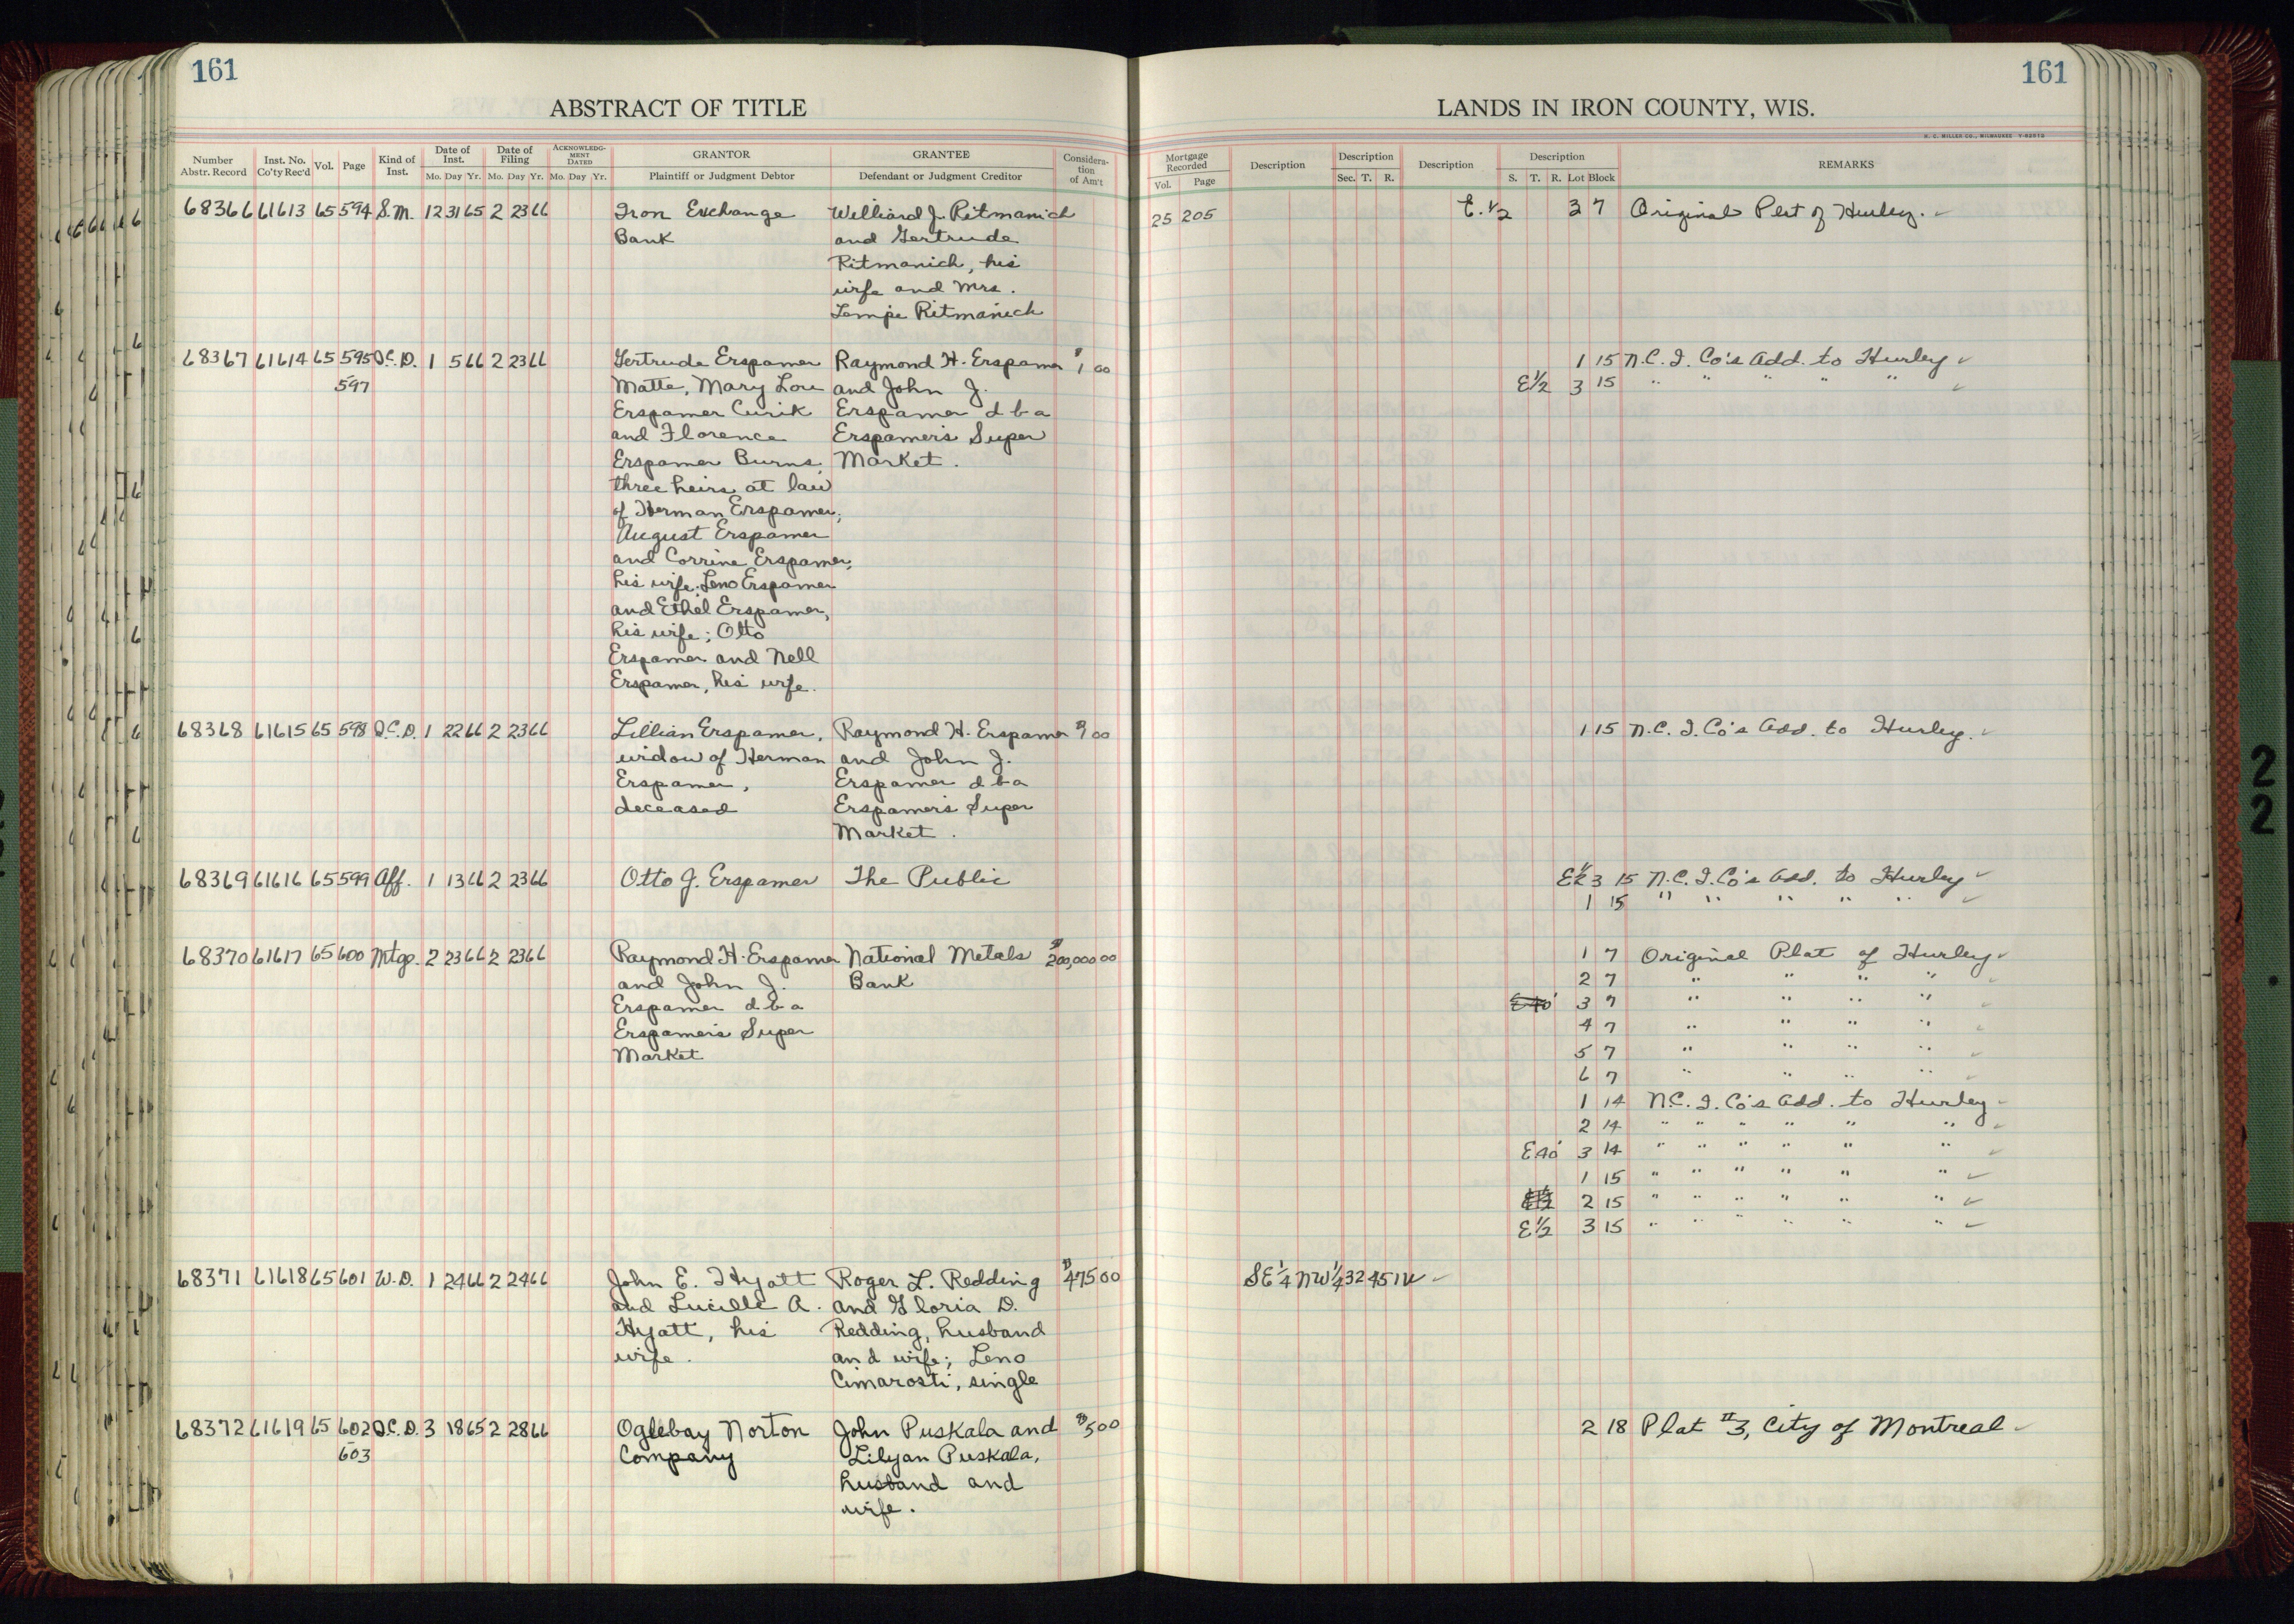 161
161
ABSTRACT OF TITLE
LANDS IN IRON COUNTY, WIS.
H. C. MILLER CO., MILWAUKEE
Number Abstr. Record Inst. No. Co'ty Rec'd Vol. Page Kind of Inst. Date of Inst. Mo. Day Yr. Date of Filing Mo. Day Yr. ACKNOWLEDGMENT DATED Mo. Day Yr. GRANTOR Plaintiff or Judgment Debtor GRANTEE Defendant or Judgment Creditor Consideration of Am't
Mortgage Recorded Vol. Page Description Description Sec. T. R. Description Description S. T. R. Lot Block REMARKS
68366 61613 65 594 S.M. 12 31 65 2 23 66 Iron Exchange Williard J. Ritmanich 25 205 E. 1/2 3 7 Original Plat of Hurley.
Bank and Gertrude
Ritmanich, his
wife and Mrs.
Lempi Ritmanich
68367 61614 65 595 Q.C.D. 1 5 66 2 23 66 Gertrude Erspamer Raymond H. Erspamer $1 00 1 15 N.C.I. Co's Add. to Hurley
597 Matta, Mary Lou and John J. E 1/2 3 15 " " " " "
Erspamer Curik Erspamer d b a
and Florence Erspamer's Super
Erspamer Burns, Market.
three heirs at law
of Herman Erspamer;
August Erspamer
and Corrine Erspamer,
his wife; Leno Erspamer
and Ethel Erspamer,
his wife; Otto
Erspamer and Nell
Erspamer, his wife.
68368 61615 65 598 Q.C.D. 1 22 66 2 23 66 Lillian Erspamer, Raymond H. Erspamer $1 00 1 15 N.C.I. Co's Add. to Hurley.
widow of Herman and John J.
Erspamer, Erspamer d b a
deceased Erspamer's Super
Market.
68369 61616 65 599 Aff. 1 13 66 2 23 66 Otto J. Erspamer The Public E 1/2 3 15 N.C.I. Co's Add. to Hurley
1 15 " " " " "
68370 61617 65 600 Mtge. 2 23 66 2 23 66 Raymond H. Erspamer National Metals $200,000 00 1 7 Original Plat of Hurley
and John J. Bank 2 7 " " " "
Erspamer d b a E 40' 3 7 " " " "
Erspamer's Super 4 7 " " " "
Market 5 7 " " " "
6 7 " " " "
1 14 N.C.I. Co's Add. to Hurley
2 14 " " " " " "
E 40' 3 14 " " " " " "
1 15 " " " " " "
2 15 " " " " " "
E 1/2 3 15 " " " " " "
68371 61618 65 601 W.D. 1 24 66 2 24 66 John E. Hyatt Roger L. Redding $475 00 SE 1/4 NW 1/4 32 45 1W
and Lucille A. and Gloria D.
Hyatt, his Redding, husband
wife. and wife; Leno
Cimarosti, single
68372 61619 65 602 Q.C.D. 3 18 65 2 28 66 Oglebay Norton John Puskala and $5 00 2 18 Plat #3, City of Montreal
603 Company Lilyan Puskala,
husband and
wife.